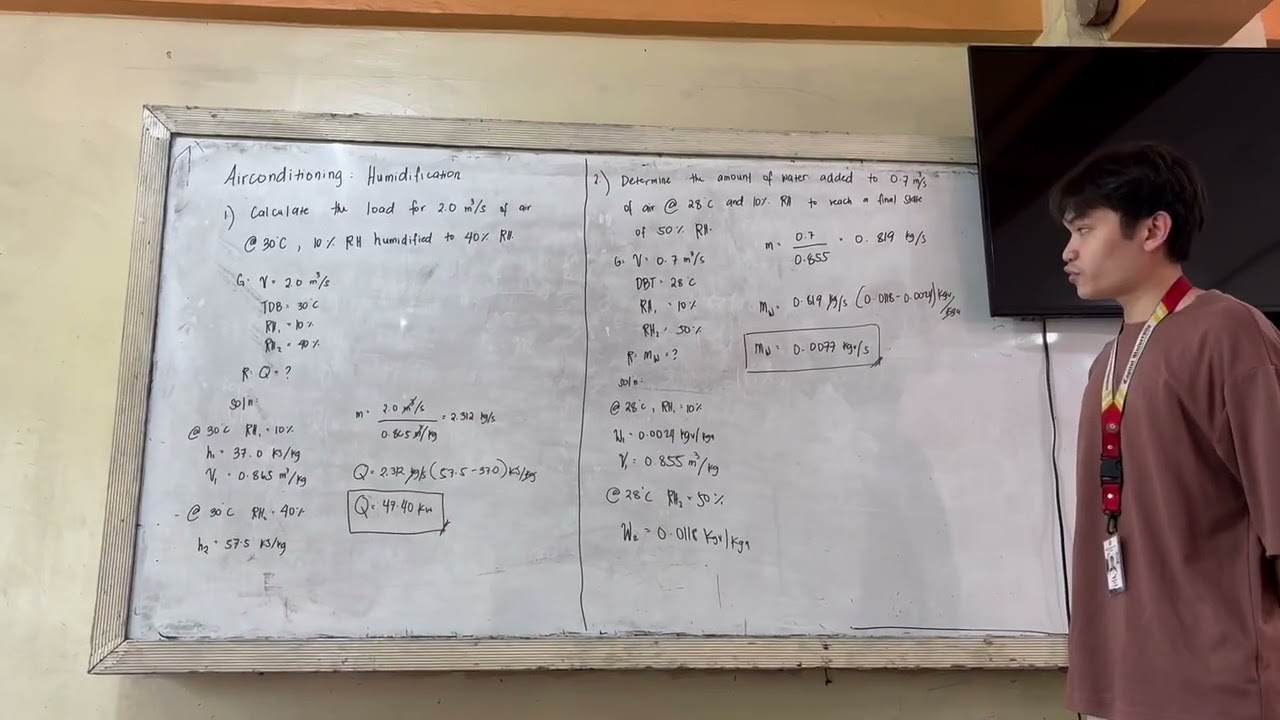 Airconditioning : Humidification
1.) Calculate the load for 2.0 m³/s of air
@ 30°C , 10% RH humidified to 40% RH.
G: V = 2.0 m³/s
TDB = 30°C
RH₁ = 10%
RH₂ = 40%
R: Q = ?
sol'n:
@ 30°C RH₁ = 10%
h₁ = 37.0 KJ/kg
V₁ = 0.865 m³/kg
@ 30°C RH₂ = 40%
h₂ = 57.5 KJ/kg
m = 2.0 m³/s / 0.865 m³/kg = 2.312 kg/s
Q = 2.312 kg/s (57.5 - 37.0) KJ/kg
Q = 47.40 Kw
2.) Determine the amount of water added to 0.7 m³/s
of air @ 28°C and 10% RH to reach a final state
of 50% RH.
G: V = 0.7 m³/s
DBT = 28°C
RH₁ = 10%
RH₂ = 50%
R: Mw = ?
sol'n:
@ 28°C , RH₁ = 10%
W₁ = 0.0024 Kgv/kga
V₁ = 0.855 m³/kg
@ 28°C RH₂ = 50%
W₂ = 0.0118 Kgv/kga
m = 0.7 / 0.855 = 0.819 kg/s
Mw = 0.819 kg/s (0.0118 - 0.0024) Kgv/kga
Mw = 0.0077 Kgv/s